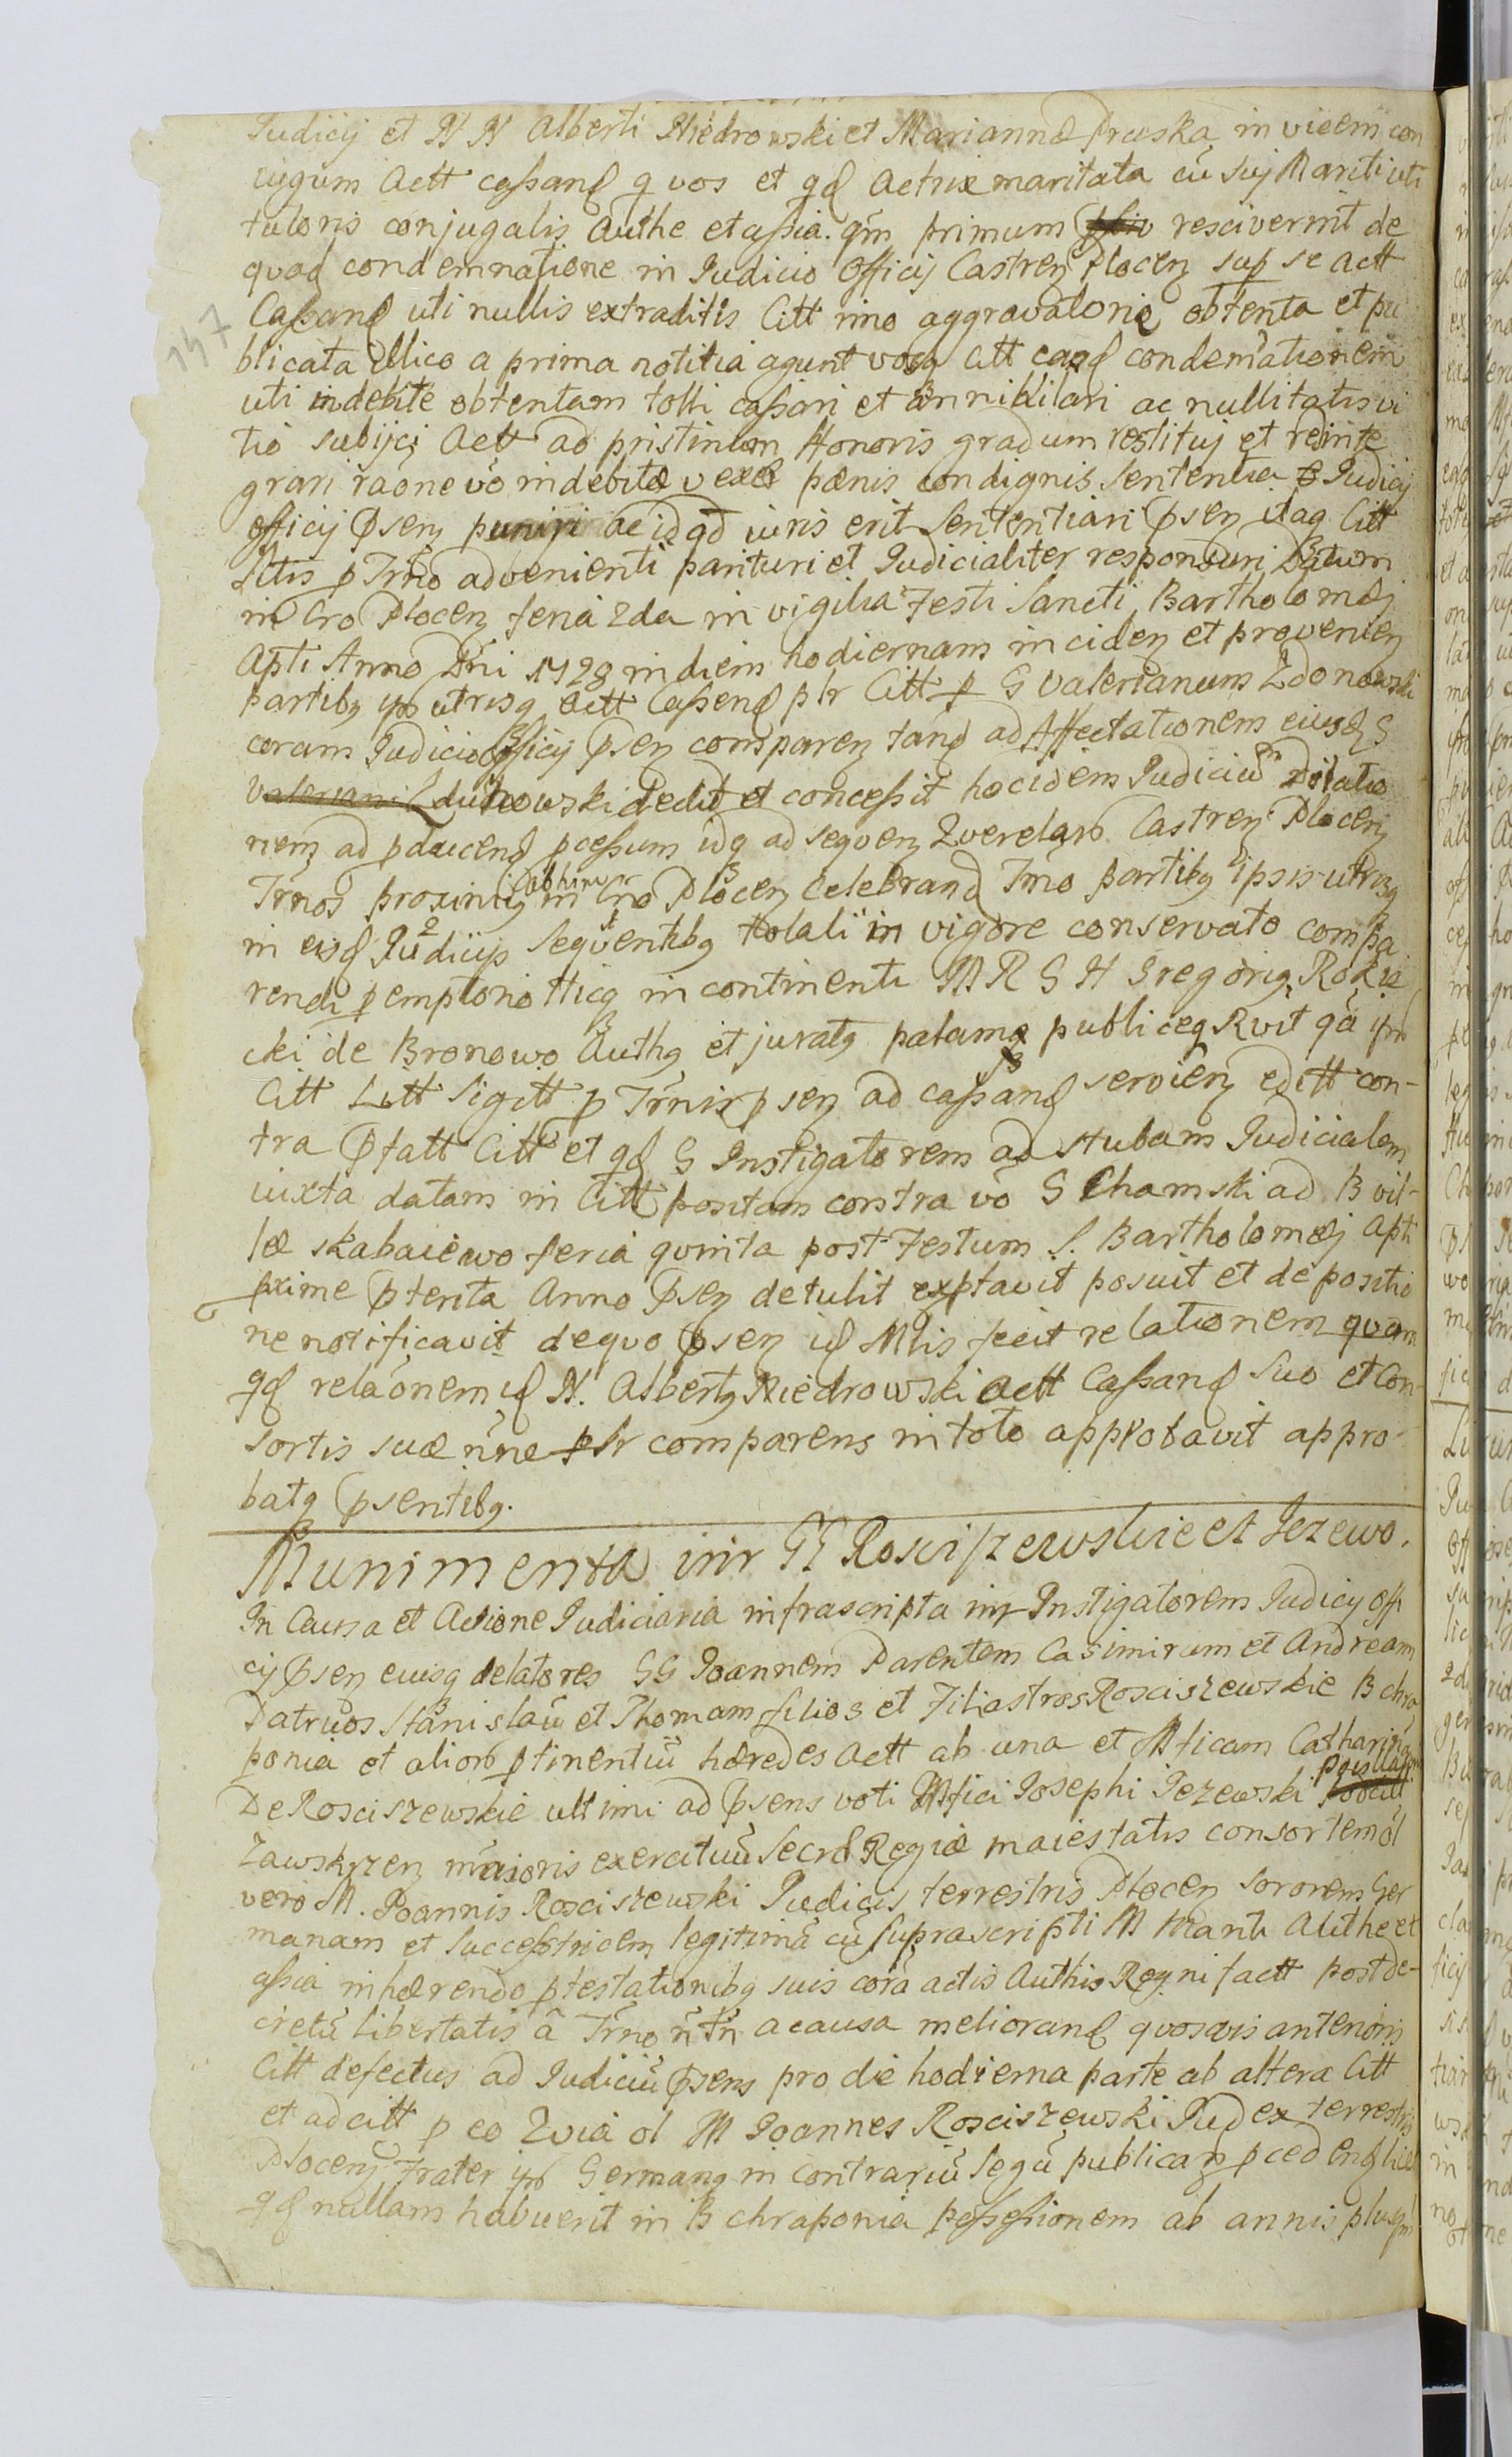 Judicij et N N Alberti Niedrowski et Mariannæ Pruska in vicem con
iugum Actt cassand q vos et qd Actrix maritata cũ suj Mariti uti
tutoris conjugalis Authe et assia. qm primum rescivernt de
quad condemnatione in Judicio Officij Castren Plocen sup se Actt
Cassand uti nullis extraditis Citt imo aggravatorie obtenta et pu
blicata illico a prima notitia agunt vosq Citt eand condemationem
uti indebite obtentam tolli cassari et annihilari ac nullitatis vi
tio subijci Actt ad pristinum Honoris gradum restituj et reinte
grari raõne võ indebitæ vexæ pænis condignis Sententia Judicij
officij psen puniri ac id qd iuris erit Sententiari psen itaq Citt
Sitis p Trno advenienti parituri et Judicialiter responsuri Datum
in Cro Plocen feria 2da in vigilia Festi Sancti Bartholomæj
Apti Anno Dni 1728 in diem hodiernam inciden et provenien
partibq utrisq Actt Cassend plr Citt p G Valerianum Zdonowski
coram Judicio Officij psen comparen tand ad Affectationem eiusd G
Valeriani Zdunowski dedit et concessit hocidem Judiciũ Dilatio
nem ad pducend pcessum idq ad sequen Querelar Castren Plocen
Trnos proximiq abhinc in Cro Plocen Celebrand Trno partibq ipsis utrisq
in eisd Judicijs sequentibq totali in vigore conservato compa
rendi pemptorio Hicq in continenti M R G H Gregoriq Rokic
cki de Bronowo Authq et juratq palamq publiceq Rvit qa ipse
Citt Litt Sigitt p Trnis psen ad cassand servien editt con-
tra ptatt Citt et qd G Instigatorem ad stubam Judicialem
iuxta datam in Citt positam contra vo G Chamski ad B vil-
læ skabaiewo feria quinta post Festum S. Bartholomæj Apti
pxime ptenta Anno psen detulit exptavit posuit et de positio
ne notificavit de quo psen id Mtis fecit relationem quam
qd relaõnem id N. Albertq Niedrowski Actt Cassand suo et Con-
sortis suæ nne plr comparens in toto approbavit appro-
batq psentibq.
Munimenta intr GG Rosciszewskie et Jezewo.
In Causa et Actione Judiciaria infrascripta intr Instigatorem Judicij offi
cij psen euisq delatores GG Joannem Parentem Casimirum et Andream
Patruos Stanislaũ et Thomam filios et Filiastros Rosciszewskie B chra
ponia et alior ptinentiũ hæredes Actt ab una et Mficam Catharinã
De Rosciszewskie ultimi ad psens voti Mfici Josephi Jezewski
Zawskrzen maioris exercituũ Secræ Regiæ maiestatis consortem ol
vero M. Joannis Rosciszewski Judicis terrestris Plocen Sororem Ger
manam et Successtricem legitimã cũ suprascripti M Mariti Authe et
assia inhærendo ptestationibq suis corã actis Authis Regni factt post de-
cretũ libertatis â Trno ntn a causa meliorand quosvis anterioris
Citt defectus ad Judiciũ psens pro die hodierna parte ab altera Citt
et ad citt p eo Quia ol M Joannes Rosciszewski Judex terrestris
Plocen Frater Germanq in Contrariũ legũ publicar pcedend licet
qd nullam habuerit in B chraponia possessionem ab annis plusqm